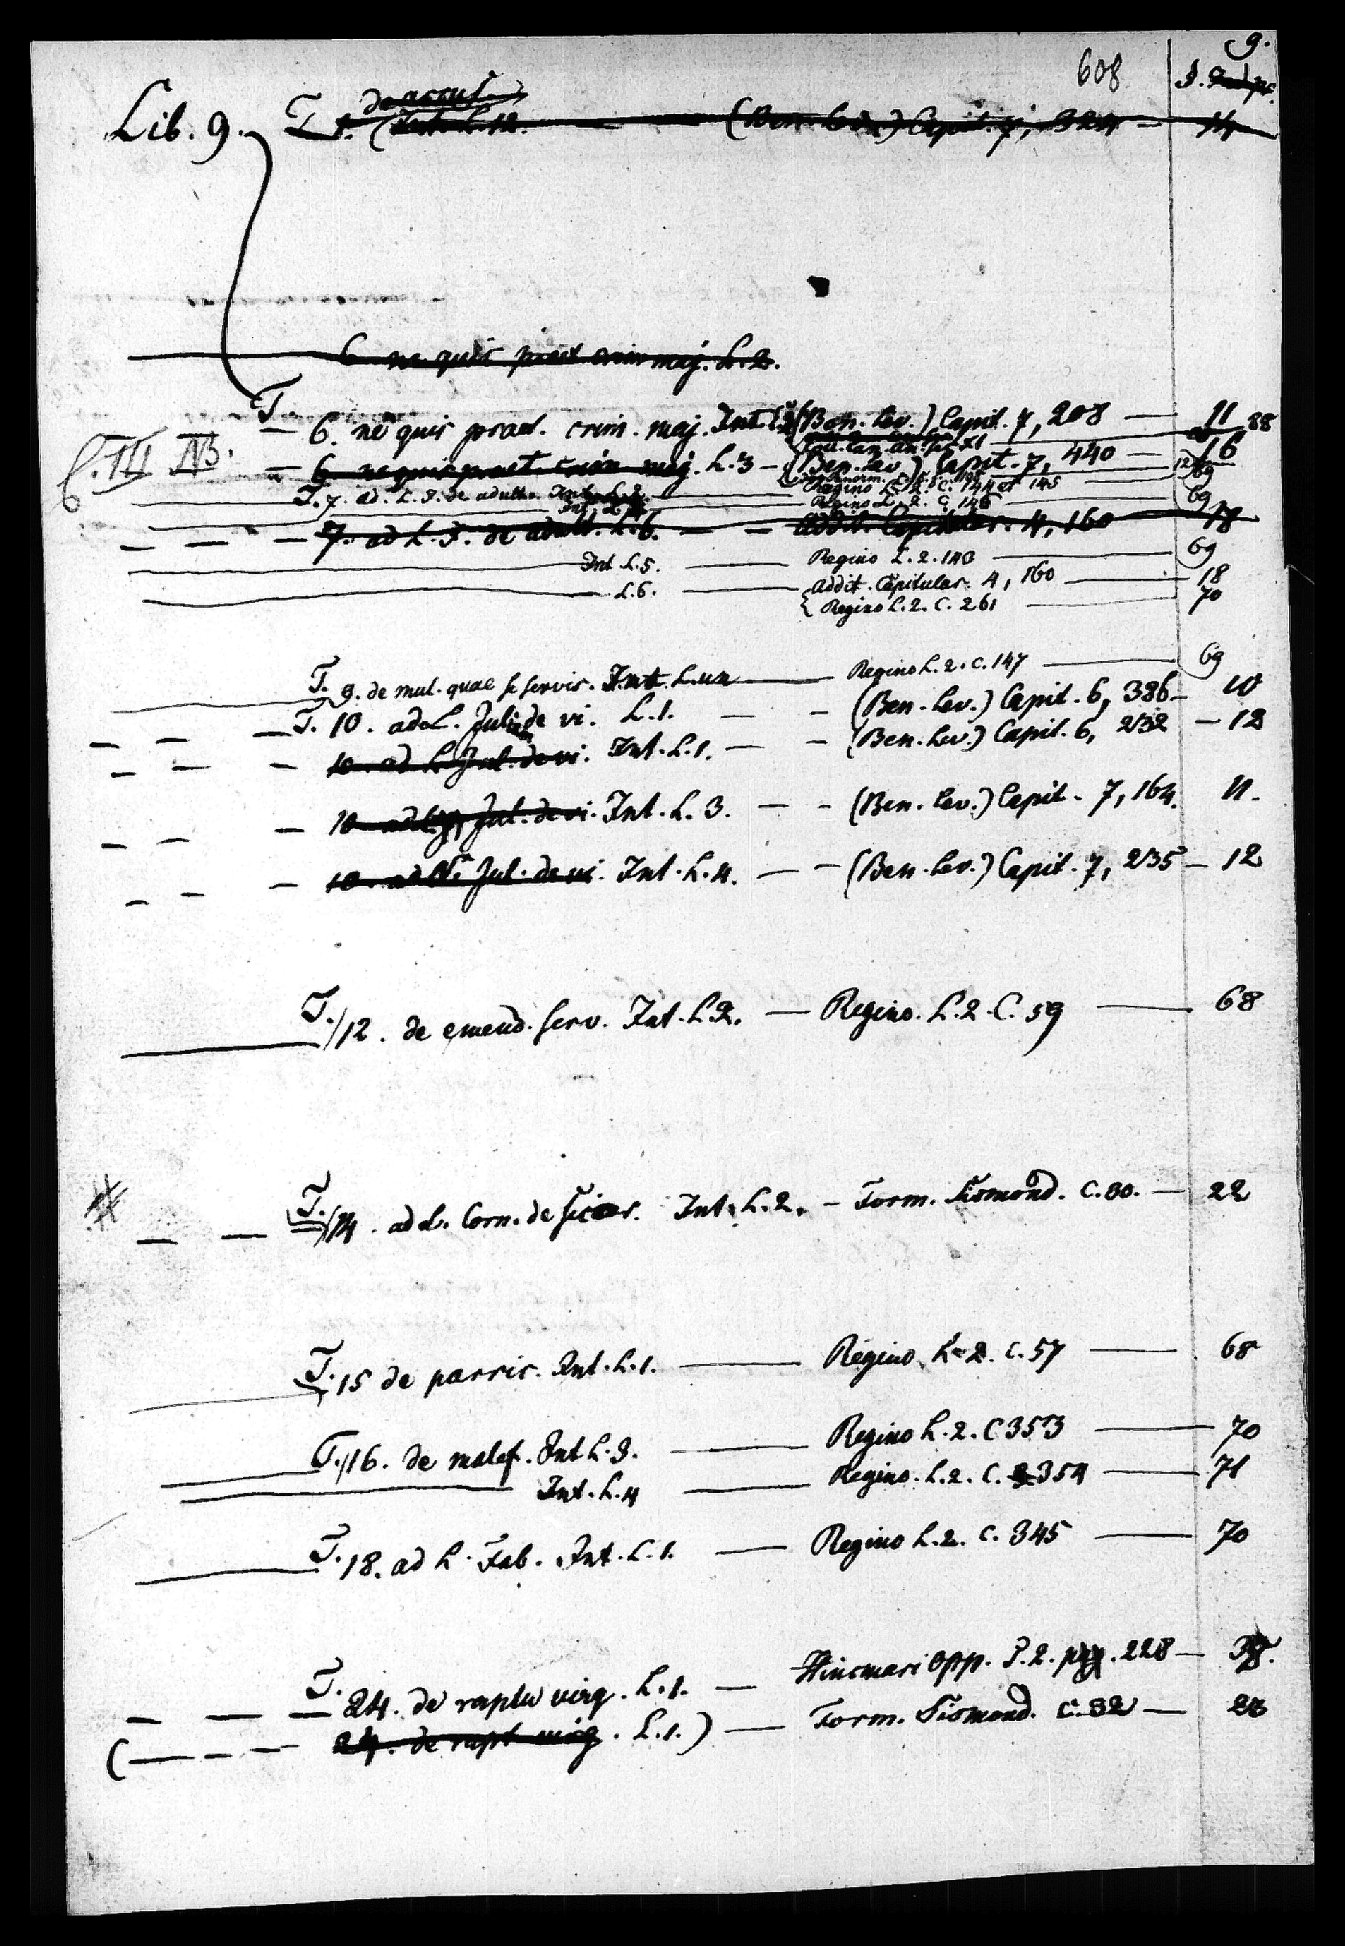 9.
608
Lib. 9. T. 1. de accus. Int. L. 12. — (Ben. Lev.) Capit. 7, 324 — 14
6. ne quis praet. crim. maj. L. 2.
T. 6. ne quis praet. crim. maj. Int. L. 2 (Ben. Lev.) Capit. 7, 208 — 11
88
C. Th. NB. 6. ne quis praet. crim. maj. L. 3 — (Ben. Lev.) Capit. 7, 440 — 16
T. 7. ad. L. J. de adult. Int. L. 2. Regino L. 2. C. 144 et 145 69
Regino L. 2. C. 146 69
7. ad L. J. de adult. L. 6. — Addit. Capitular. 4, 160 — 18
Int L. 5. — Regino L. 2. 143 — 69
L. 6. — Addit. Capitular. 4, 160 — 18
Regino L. 2. C. 261 — 70
T. 9. de mul. quae se servis. Int. L. un — Regino L. 2. C. 147 — 69
T. 10. ad L. Jul. de vi. L. 1. — (Ben. Lev.) Capit. 6, 386 — 10
10. ad L. Jul. de vi. Int. L. 1. — (Ben. Lev.) Capit. 6, 232 — 12
10 ad L. Jul. de vi. Int. L. 3. — (Ben. Lev.) Capit. 7, 164. 11.
10. ad L. Jul. de vi. Int. L. 4. — (Ben. Lev.) Capit. 7, 235 — 12
T. 12. de emend. serv. Int. L. 2. — Regino. L. 2. C. 59 — 68
T. 14. ad L. Corn. de sicar. Int. L. 2. — Form. Sismond. C. 30. — 22
T. 15 de parric. Int. L. 1. — Regino L. 2. C. 57 — 68
T. 16. de malef. Int L. 3. — Regino L. 2. C 353 — 70
Int. L. 4 — Regino. L. 2. C. 354 — 71
T. 18. ad L. Fab. Int. L. 1. — Regino L. 2. C. 345 — 70
T. 24. de raptu virg. L. 1. — Hincmari Opp. T. 2. pag. 228 —
( 24. de rapt virg. L. 1.) — Form. Sismond. C. 32 — 23